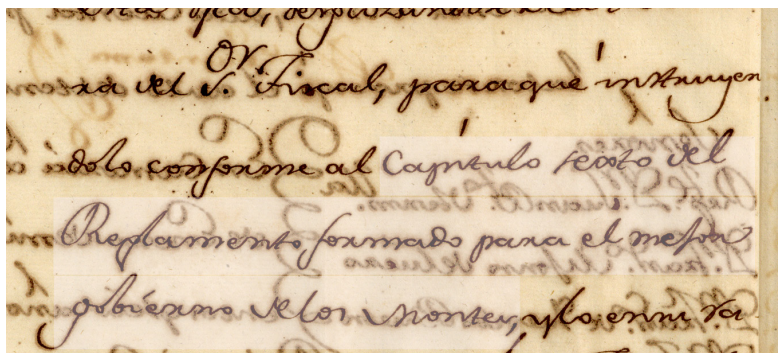 ra del S.or Fiscal, para que instruyen
dolo conforme al Capitulo sexto del
Reglamento formado para el mejor
gobierno delos Montes, y lo